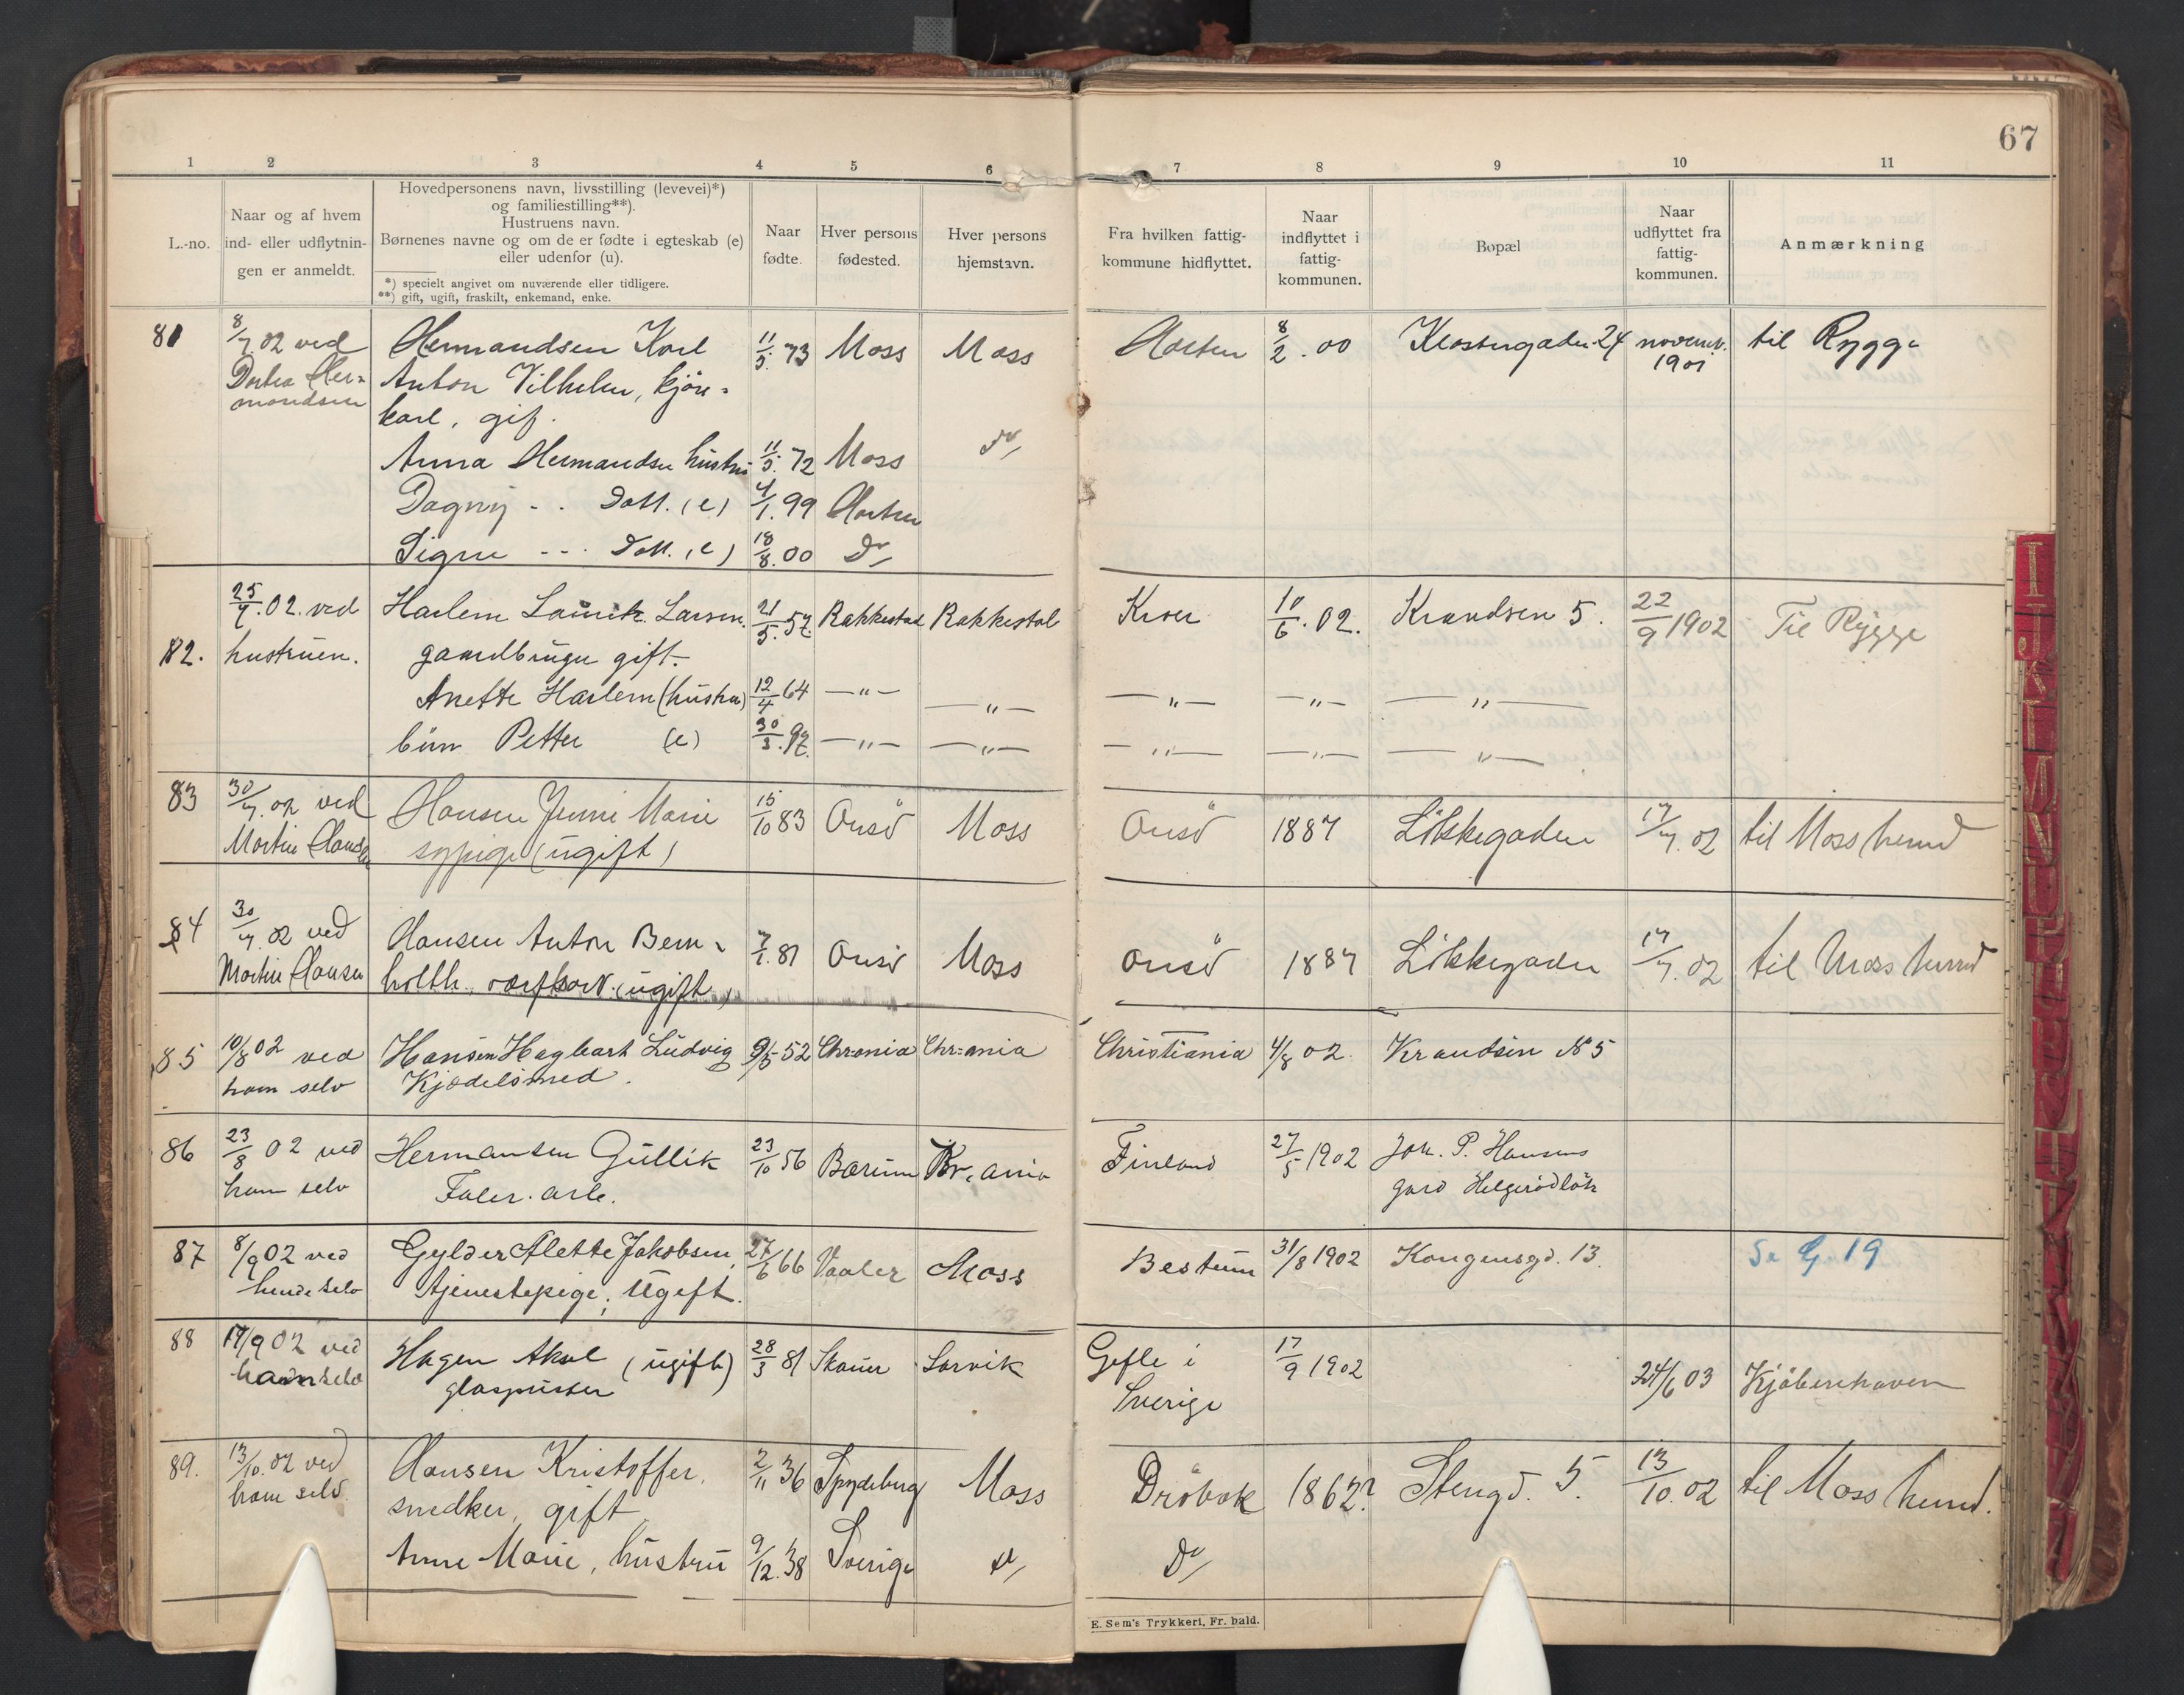 67
1 2 3 4 5 6 7 8 9 10 11
L.-no.
Naar og af hvem
ind- eller udflytnin-
gen er anmeldt.
Hovedpersonens navn, livsstilling (levevei)*)
og familiestilling**).
Hustruens navn.
Børnenes navne og om de er fødte i egteskab (e)
eller udenfor (u).
*) specielt angivet om nuværende eller tidligere.
**) gift, ugift, fraskilt, enkemand, enke.
Naar
fødte.
Hver persons
fødested.
Hver persons
hjemstavn.
Fra hvilken fattig-
kommune hidflyttet.
Naar
indflyttet i
fattig-
kommunen.
Bopæl
Naar
udflyttet fra
fattig-
kommunen.
Anmærkning
81 8/7.02 ved Hermandsen Karl 11/5.73 Moss Moss Horten 8/2.00 Klostergaden 24 novembr. til Rygge
Dortea Her= Anton Vilhelm, kjöre= 1901
mandsen karl, gift.
Anna Hermandsen hustru 11/5.72 Moss Do
Dagny - - Datt. (e) 4/1.99 Horten
Signe - - - Datt. (e) 18/8.00 Do
25/7.02. ved Harlem Laurits Larsen. 21/5.57. Rakkestad Rakkestad Kroer 10/6.02. Krandsen 5. 22/9 1902 Til Rygge
82. hustruen. gaardbruger gift.
Anette Harlem (hustru) 12/4 64 —"— —"— —"— —"— —"—
barn Petter (e) 30/3.97. —"— —"— —"— —"— —"—
83 30/7.02 ved Hansen Jenni Marie 15/10 83 Onsö Moss Onsö 1887 Lökkegaden 17/7.02 til Moss herred
Martin Hansen sypige (ugift)
84 30/7.02 ved Hansen Anton Bern= 7/1.81 Onsö Moss Onsö 1887 Lökkegaden 17/7.02 til Moss herred
Martin Hansen holth. (ugift)
85 10/8 02 ved Hansen Hagbart Ludvig 9/5 52 Chr=ania Chr=ania Christiania 4/8 02. Krandsen № 5
ham selv Kjædelsmed.
86 23/8 02 ved Hermansen Gullik 23/10 56 Bærum Kr.ania Finland 27/5 1902 Joh. P. Hansens
ham selv Faler. arb. gard Helgerödlök
87 8/9 02 ved Gylder Alette Jakobsen, 27/6 66 Vaaler Moss Bestum 31/8 1902 Kongensgd. 13. Se G. 19
hende selv tjenestepige; ugift.
88 17/9 02 ved Hagen Aksel (ugift) 28/3 81 Skauer Larvik Gefle i 17/9 1902 24/6 03 Kjöbenhaven
ham selv glaspusser Sverige
89. 13/10.02 ved Hansen Kristoffer. 2/11 36 Spydeberg Moss Dröbak 1862? Stengd. 5. 13/10.02 til Moss herred.
ham selv. snedker, gift
Anne Marie, hustru 9/12.38 Sverige Do Do
E. Sem's Trykkeri, Fr. hald.
I J K L